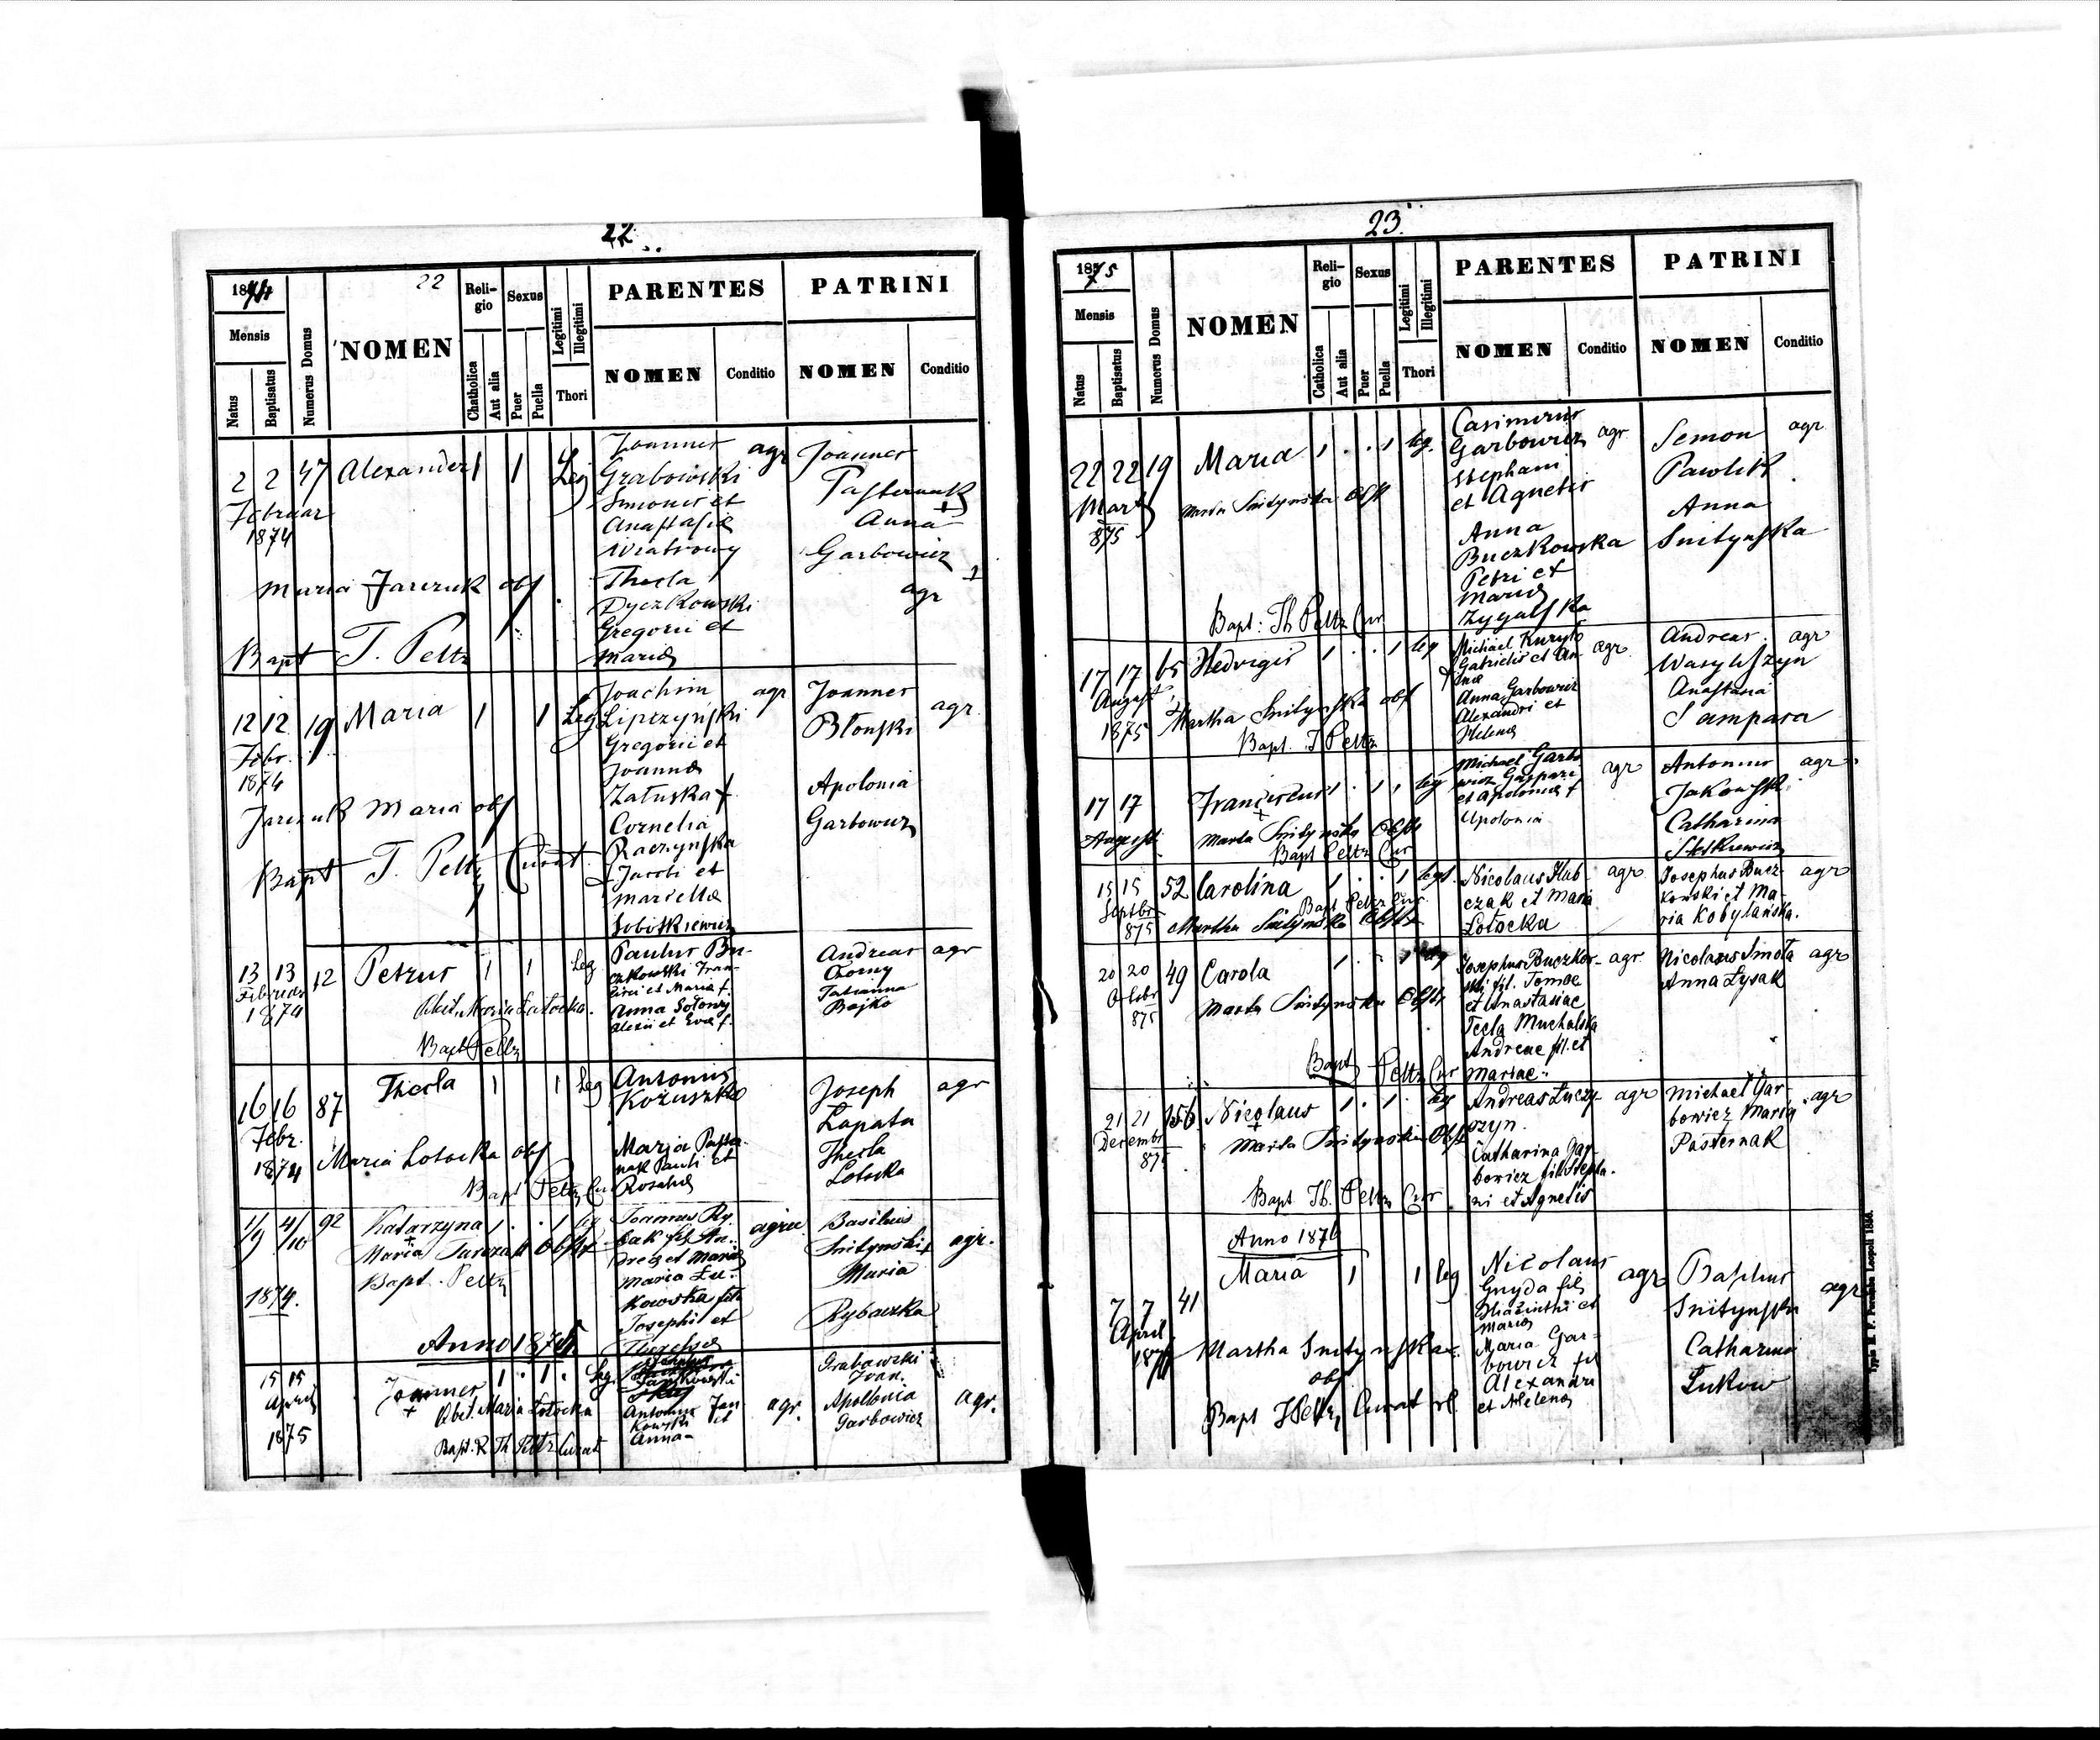 22
1874
22
Mensis
Natus
Baptisatus
Numerus Domus
NOMEN
Reli-
gio
Chatholica
Aut alia
Sexus
Puer
Puella
Legitimi
Illegitimi
Thori
PARENTES
NOMEN
Conditio
PATRINI
NOMEN
Conditio
2 2 47 Alexander 1 1 Leg
Februar
1874
Maria Jarczuk obs
Bapt T. Peltz
Joannes agr
Grabowski
Simonis et
Anastasia
Wiatrowy
Thecla
Dyczkowski
Gregorii et
Maria
Joannes
Pasternak
Anna
Garbowicz
agr
12 12 19 Maria 1 1 Leg
Febr.
1874
Jarczuk Maria obs
Bapt T. Peltz Curat
Joachim agr
Lipczyński
Gregorii et
Joanna
Załuska f.
Cornelia
Raczynska
f. Jacobi et
Mariella
Sobiskiewicz
Joannes
Błonski agr
Apolonia
Garbowicz
13 13 12 Petrus 1 1 Leg
Februar
1874
Obst. Maria Łotocka.
Bapt Peltz
Paulus Bu-
czkowski Fran-
cisci et Maria f.
Anna Sołowy
Alexii et Eva f.
Andreas agr
Czorny
Tatianna
Bojko
16 16 87 Thecla 1 1 Leg
Febr.
1874 Maria Lotocka obs
Bapt Peltz Cur
Antonius
Kożuszko
Maria Paster-
nak Pauli et
Rosalia
Joseph agr
Lapata
Thecla
Lotocka
1/9 4/10 92 Katarzyna 1 . . 1 leg
Maria Jarczuk Obst
Bapt. Peltz
1874.
Joannes Ry-
bak fil An-
drea et Maria
Maria Łu-
kowska fil
Josephi et
Thecla
Basilius
Snitynski agr.
Maria
Rybaczka
Anno 1875
15 15 Joannes 1 . 1 . leg.
April
1875
Obst. Maria Łotocka
Bapt. R. Th Peltz Curat
Antonius Jan
kowski et
Anna
agr.
Grabowski
Ivan.
Apollonia agr.
Garbowicz
23.
1875
Mensis
Natus
Baptisatus
Numerus Domus
NOMEN
Reli-
gio
Catholica
Aut alia
Sexus
Puer
Puella
Legitimi
Illegitimi
Thori
PARENTES
NOMEN
Conditio
PATRINI
NOMEN
Conditio
22 22 19 Maria 1 . . 1 leg.
Marty
875
Marta Snitynska Obst
Bapt: Th Peltz Cur
Casimirus
Garbowicz agr
Stephani
et Agnetis
Anna
Buczkowska
Petri et
Maria
Zygalska
Semon agr
Pawlik
Anna
Snitynska
17 17 65 Hedvigis 1 . . 1 leg
August
1875
Martha Snitynska obs
Bapt. T Peltz
Michael Kuryło
Gabrielis et An-
na agr
Anna Garbowicz
Alexandri et
Helena
Andreas agr
Wasylszyn
Anastasia
Sampara
17 17 Franciscus 1 . 1 . leg
August
Marta Snitynska Obst
Bapt Peltz Cur
Michael Garbo
wicz Gaspari
et Apolonia f
Apolonia
agr
Antonius agr
Jakowski
Catharina
15 15 52 Carolina 1 . . 1 legt.
Septbr
875
Bapt Peltz Cur
Martha Snitynska Obst
Nicolaus Hub-
czak et Maria
Lotocka
agr
Josephus Bucz-
kowski et Ma-
ria Kobylańska.
agr
20 20 49 Carola 1 . . 1 leg
Octobr
875
Marta Snitynska Obst
Bapt Peltz Cur
Josephus Buczkow-
ski fil. Tomae
et Anastasiae
Tecla Muchalska
Andreae fil. et
Mariae
agr
Nicolaus Smota
Anna Łysak
agr
21 21 156 Nicolaus 1 . 1 . leg
Decembr
875
Marta Snitynska Obst
Bapt Th. Peltz Cur
Andreas Łuczy-
szyn.
Catharina Gar-
bowicz fil. Stepha-
ni et Agnetis
agr
Michael Gar-
bowicz Maria
Pasternak
agr
Anno 1876
Maria 1 1 leg
7 7 41
April
1876
Martha Snitynska
obs
Bapt TPeltz Curat rl.
Nicolaus
Gnyda fil
Hiazinthi et
Maria
Maria Gar-
bowicz fil
Alexandri
et Helena
agr
Basilius
Snitynski
Catharina
Łukow
agr